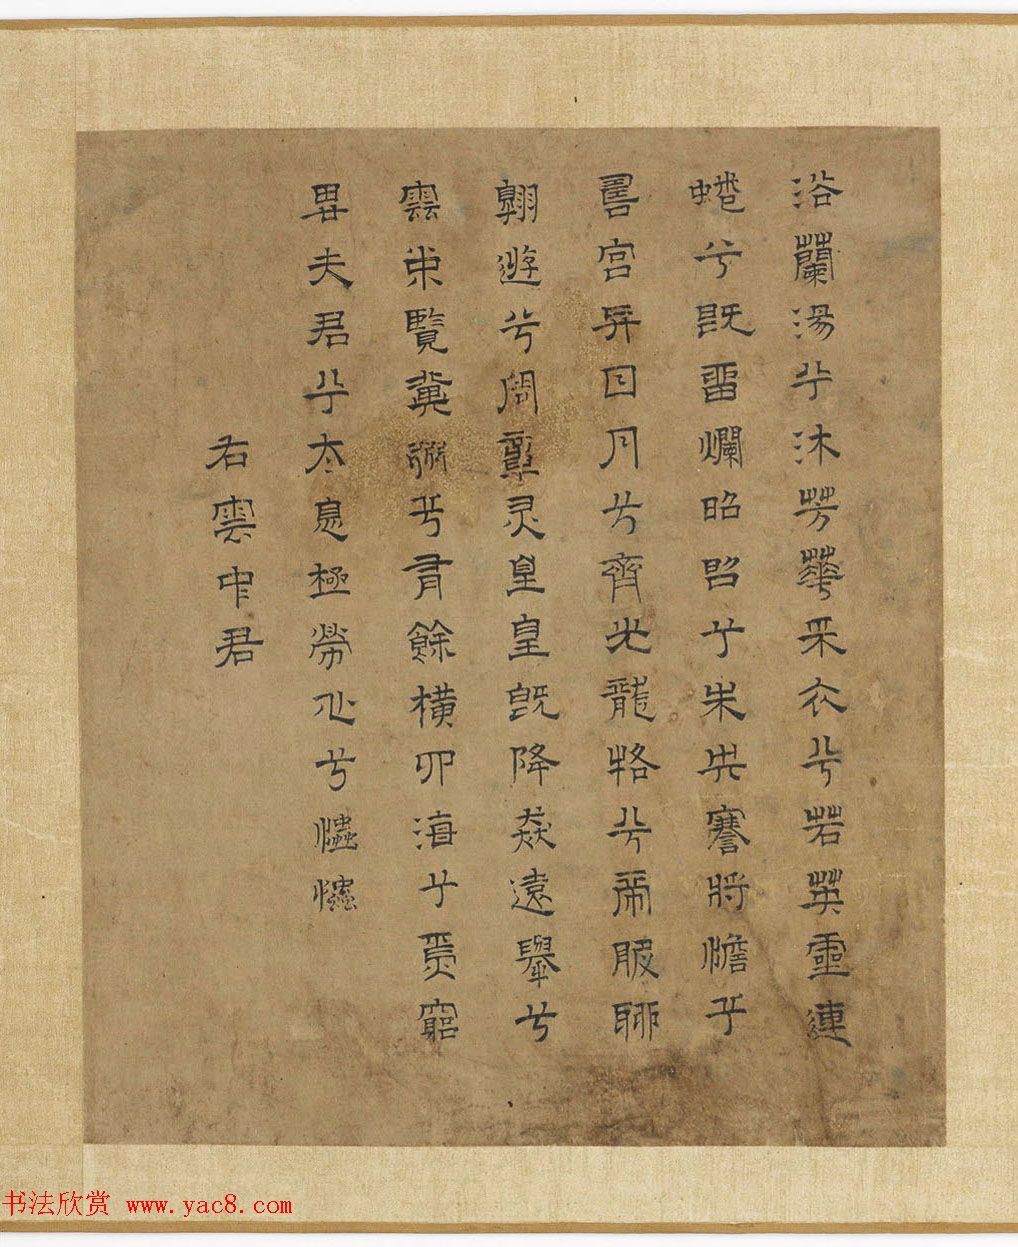 浴蘭湯兮沐芳華采衣兮若英靈連
蜷兮既畱爛昭昭兮未央謇將憺兮
壽宮與日月兮齊光龍駕兮帝服聊
翱遊兮周章灵皇皇既降猋遠舉兮
雲中覽冀州兮有餘橫四海兮焉窮
思夫君兮太息極勞心兮𢥞𢥞
右雲中君
书法欣赏 www.yac8.com